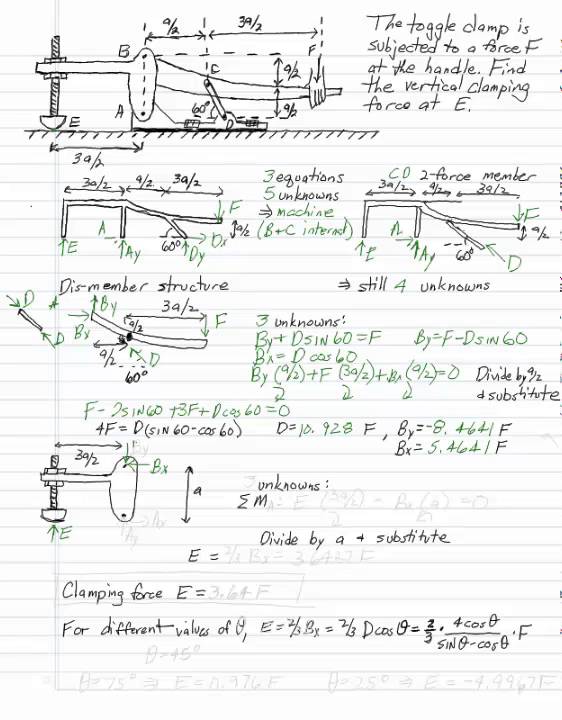 a/2 3a/2
The toggle clamp is
subjected to a force F
at the handle. Find
the vertical clamping
force at E.
B C F a/2
A 60° D a/2
E
3a/2
3a/2 a/2 3a/2
3 equations
5 unknowns
⇒ machine
(B+C internal)
F a/2
E A Ay 60° Dy Dx
CD 2-force member
3a/2 a/2 3a/2
F a/2
E A Ay 60° D
⇒ still 4 unknowns
Dis-member structure
D D
By 3a/2
Bx a/2 F
a/2 D
60°
3 unknowns:
By + D sin 60 = F By = F - D sin 60
Bx = D cos 60
By (a/2) + F (3a/2) + Bx (a/2) = 0 Divide by a/2
2 2 2 & substitute
F - D sin 60 + 3F + D cos 60 = 0
4F = D (sin 60 - cos 60) D = 10.928 F, By = -8.4641 F
Bx = 5.4641 F
3a/2 By
Bx
a
E Ay Ax
3 unknowns:
ΣMA: E (3a/2) - Bx (a) = 0
2
Divide by a & substitute
E = 2/3 Bx = 3.6427 F
Clamping force E = 3.64 F
For different values of θ, E = 2/3 Bx = 2/3 D cos θ = 2/3 · 4 cos θ / sin θ - cos θ · F
θ = 45°
θ = 75° ⇒ E = 0.976 F θ = 25° ⇒ E = -4.9967 F